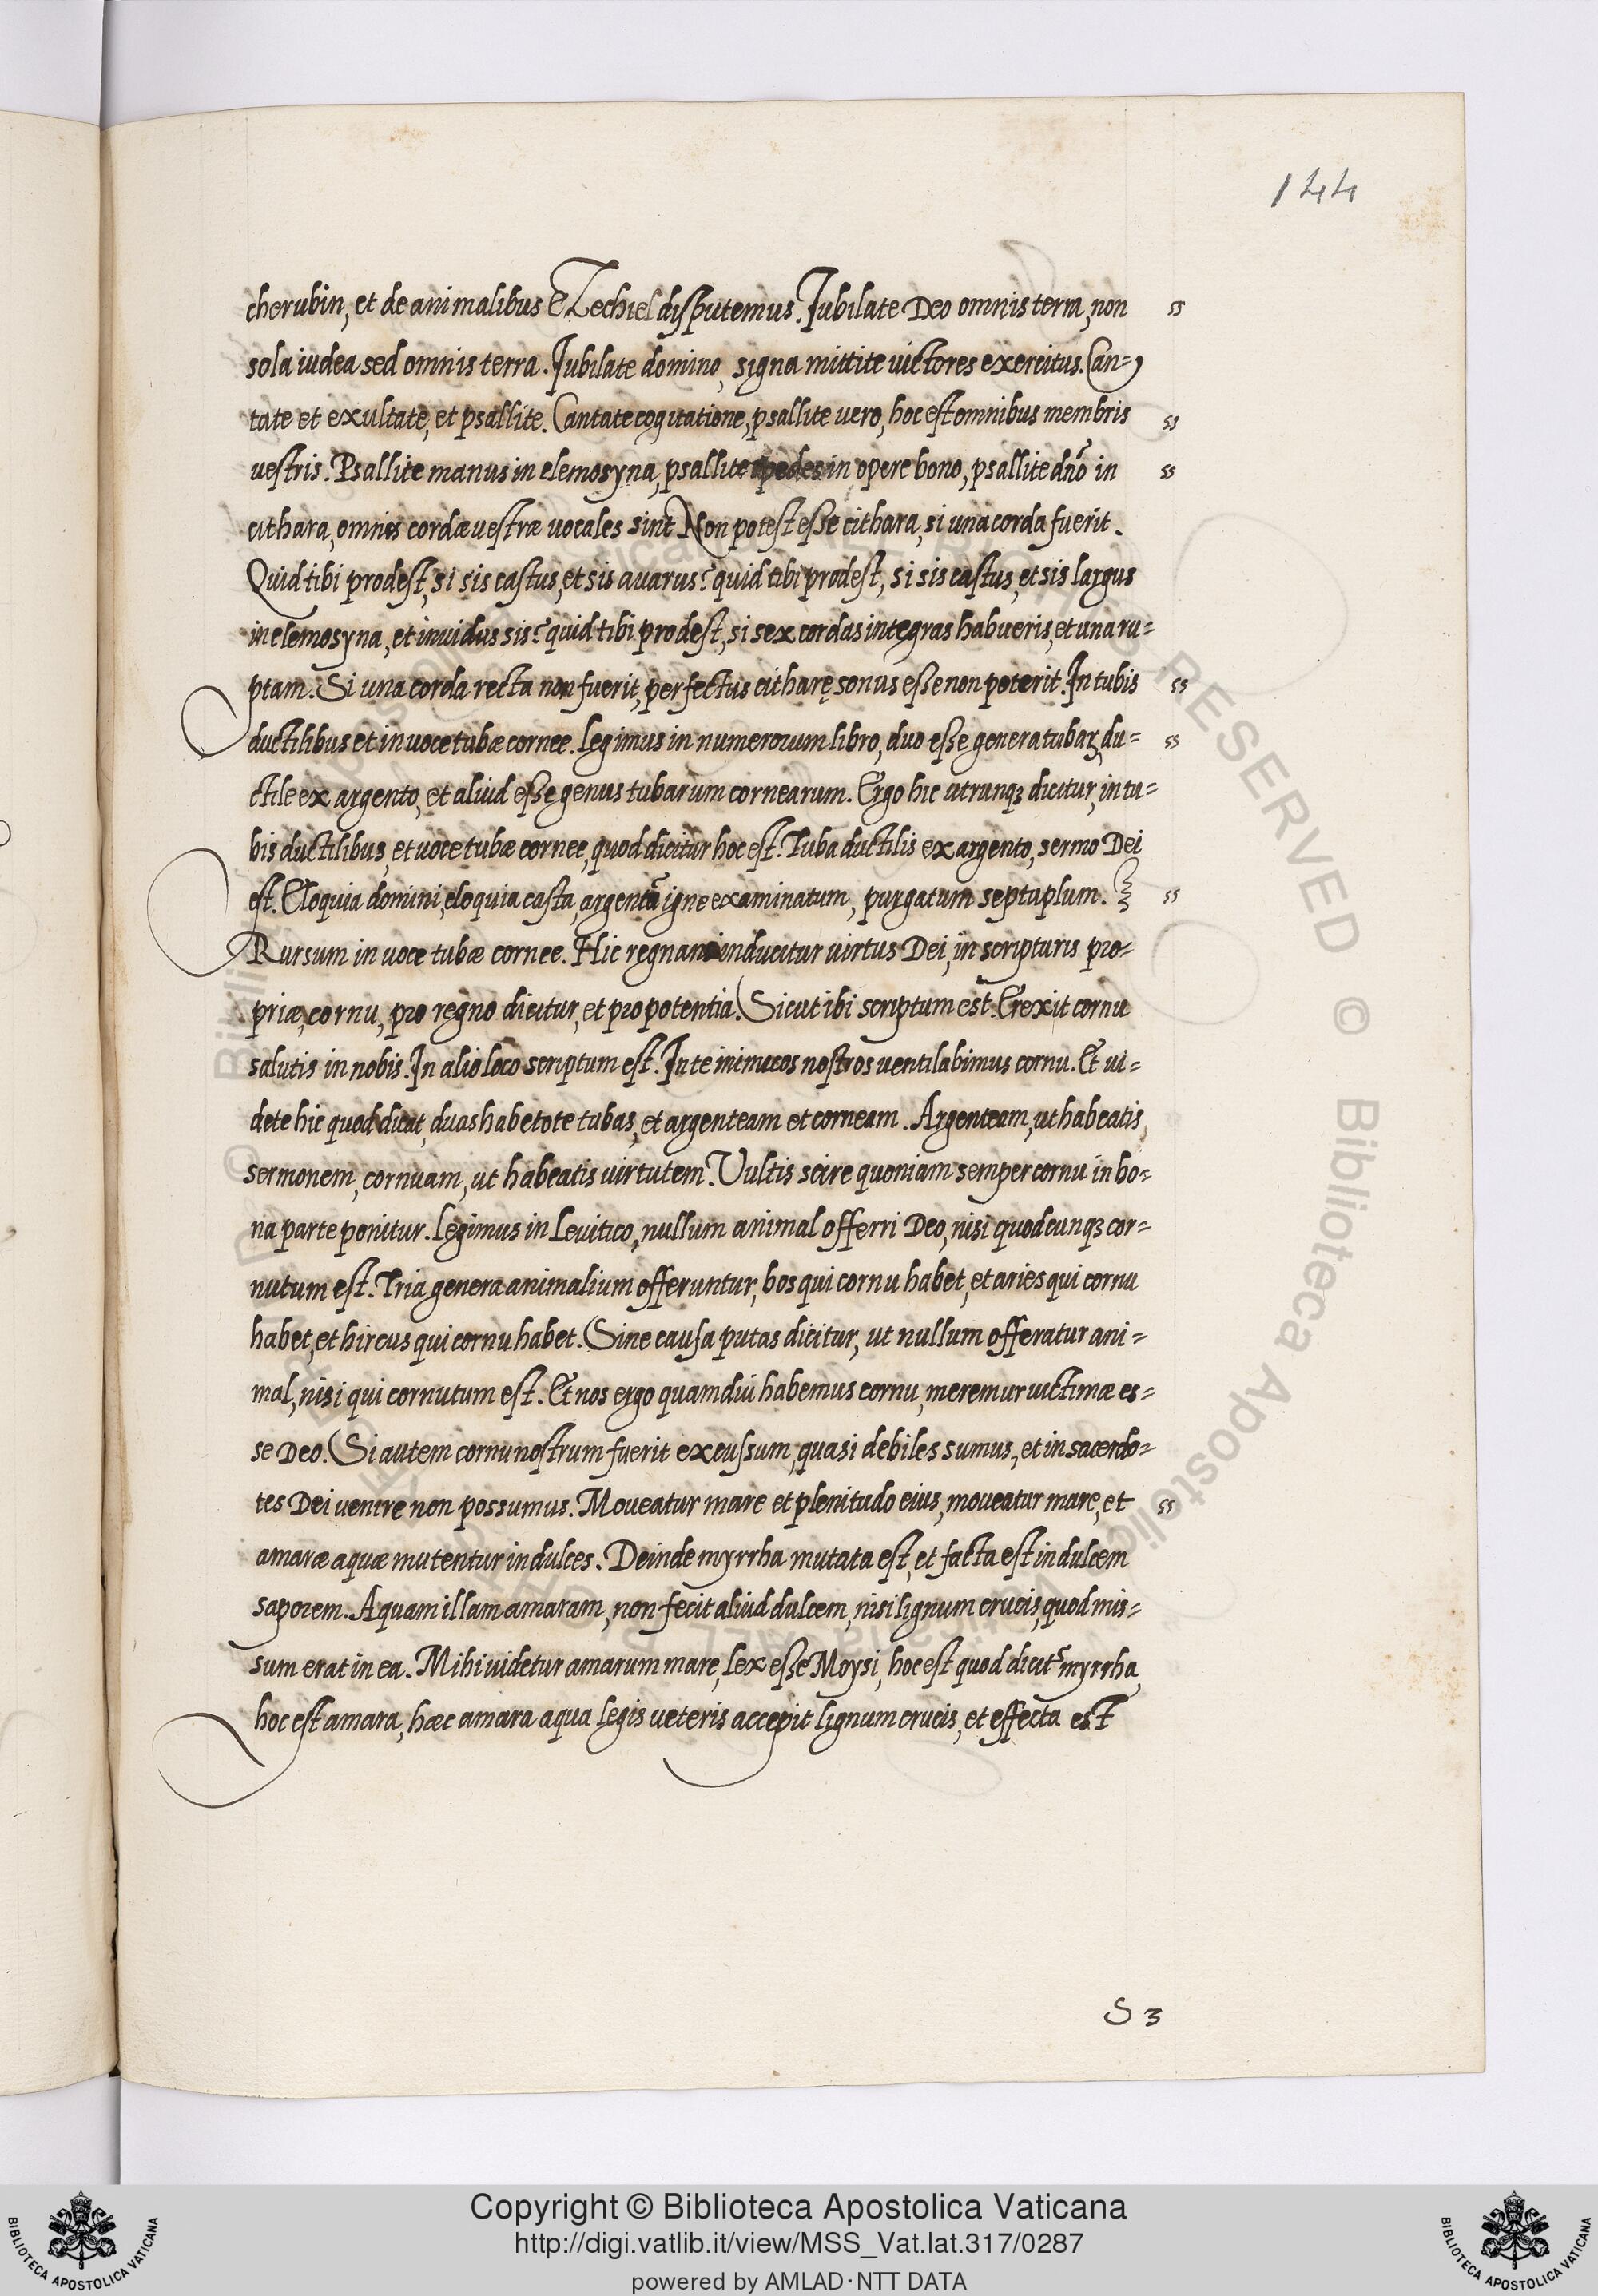 144
cherubin, et de animalibus Ezechiel disputemus. Iubilate Deo omnis terra, non
sola iudea sed omnis terra. Iubilate domino, signa mittite victores exercitus. Can=
tate et exultate, et psallite. Cantate cogitatione, psallite vero, hoc est omnibus membris
vestris. Psallite manus in elemosyna, psallite pedes in opere bono, psallite dño in
cithara, omnes cordæ vestræ vocales sint Non potest esse cithara, si una corda fuerit.
Quid tibi prodest, si sis castus, et sis avarus? quid tibi prodest, si sis castus, et sis largus
in elemosyna, et invidus sis? quid tibi prodest, si sex cordas integras habueris, et una ru=
ptam. Si una corda recta non fuerit, perfectus citharę sonus esse non poterit. In tubis
ductilibus et in voce tubæ cornee. Legimus in numerorum libro, duo esse genera tubaꝝ, du=
ctile ex argento, et aliud esse genus tubarum cornearum. Ergo hic utrunqꝫ dicitur, in tu=
bis ductilibus, et voce tubæ cornee, quod dicitur hoc est. Tuba ductilis ex argento, sermo Dei
est. Eloquia domini, eloquia casta, argentũ igne examinatum, purgatum septuplum.
Rursum in voce tubæ cornee. Hic inducitur virtus Dei, in scripturis pro=
priæ, cornu, pro regno dicitur, et pro potentia. Sicut ibi scriptum est. Erexit cornu
salutis in nobis. In alio loco scriptum est. In te inimicos nostros ventilabimus cornu. Et vi=
dete hic quod dicat, duas habetote tubas, et argenteam et corneam. Argenteam, ut habeatis
sermonem, cornuam, ut habeatis virtutem. Vultis scire quoniam semper cornu in bo=
na parte ponitur. Legimus in Levitico, nullum animal offerri Deo, nisi quodcunqꝫ cor=
nutum est. Tria genera animalium offeruntur, bos qui cornu habet, et aries qui cornu
habet, et hircus qui cornu habet. Sine causa putas dicitur, ut nullum offeratur ani=
mal, nisi qui cornutum est. Et nos ergo quamdiu habemus cornu, meremur victimæ es=
se Deo. Si autem cornu nostrum fuerit excussum, quasi debiles sumus, et in sacerdo=
tes Dei venire non possumus. Moveatur mare et plenitudo eius, moveatur mare, et
amaræ aquæ mutentur in dulces. Deinde myrrha mutata est, et facta est in dulcem
saporem. Aquam illam amaram, non fecit aliud dulcem, nisi lignum crucis, quod mis=
sum erat in ea. Mihi videtur amarum mare, lex esse Moysi, hoc est quod dicit myrrha,
hoc est amara, hæc amara aqua legis veteris accepit lignum crucis, et effecta est
S 3
Copyright © Biblioteca Apostolica Vaticana
http://digi.vatlib.it/view/MSS_Vat.lat.317/0287
powered by AMLAD·NTT DATA
BIBLIOTECA APOSTOLICA VATICANA
BIBLIOTECA APOSTOLICA VATICANA